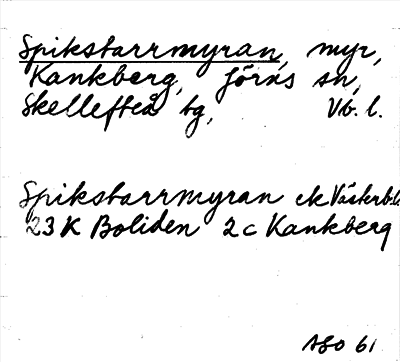 Spikstarrmyran, myr,
Kankberg, Jörns sn,
Skellefteå tg, Vb. l.
Spikstarrmyran ek Västerb.l.
23 K Boliden 2 c Kankberg
ASO 61